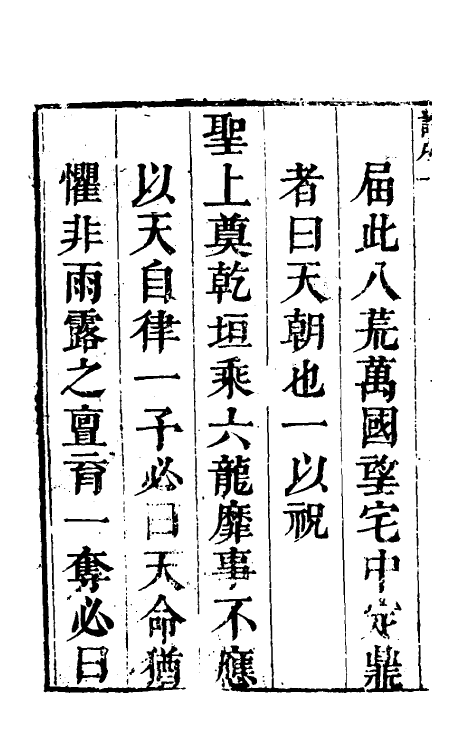 屆此八荒萬國望宅中定鼎
者曰天朝也一以祝
聖上奠乾垣乘六龍靡事不應
以天自律一予必曰天命猶
懼非雨露之亶育一奪必曰